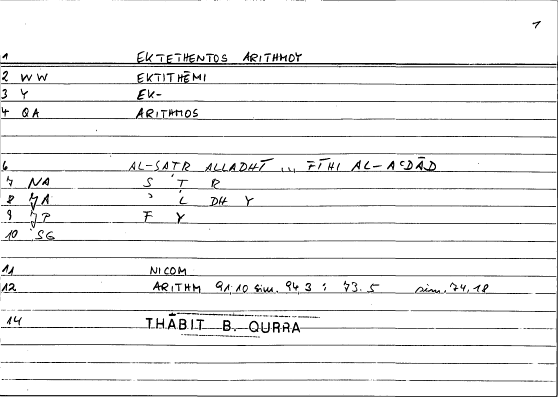 1
1 EKTETHENTOS ARITHMOY
2 WW EKTITHĒMI
3 Y EK-
4 QA ARITHMOS
6 AL-SATR ALLADHĪ ... FĪHI AL-AʿDĀD
7 NA S T R
8 JA ʾ L DH Y
9 JP F Y
10 SG
11 NICOM
12 ARITHM 91,10 sim. 94,3 : 73.5 sim. 74,18
14 THĀBIT B. QURRA